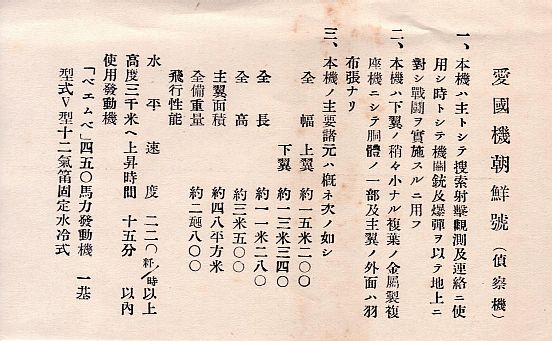 愛國機朝鮮號(偵察機)
一、本機ハ主トシテ搜索射擊觀測及連絡ニ使
用シ時トシテ機關銃及爆彈ヲ以テ地上ニ
對シ戰鬪ヲ實施スルニ用フ
二、本機ハ下翼ノ稍々小ナル複葉ノ金屬製複
座機ニシテ胴體ノ一部及主翼ノ外面ハ羽
布張ナリ
三、本機ノ主要諸元ハ槪ネ次ノ如シ
全幅 上翼 約一五米二〇〇
下翼 約一三米三四〇
全長 約一一米二八〇
全高 約三米五〇〇
主翼面積 約四八平方米
全備重量 約二瓲八〇〇
飛行性能
水平速度 二二〇粁/時以上
高度三千米ヘ上昇時間 十五分以內
使用發動機
「ベエムベ」四五〇馬力發動機 一基
型式V型十二氣筩固定水冷式